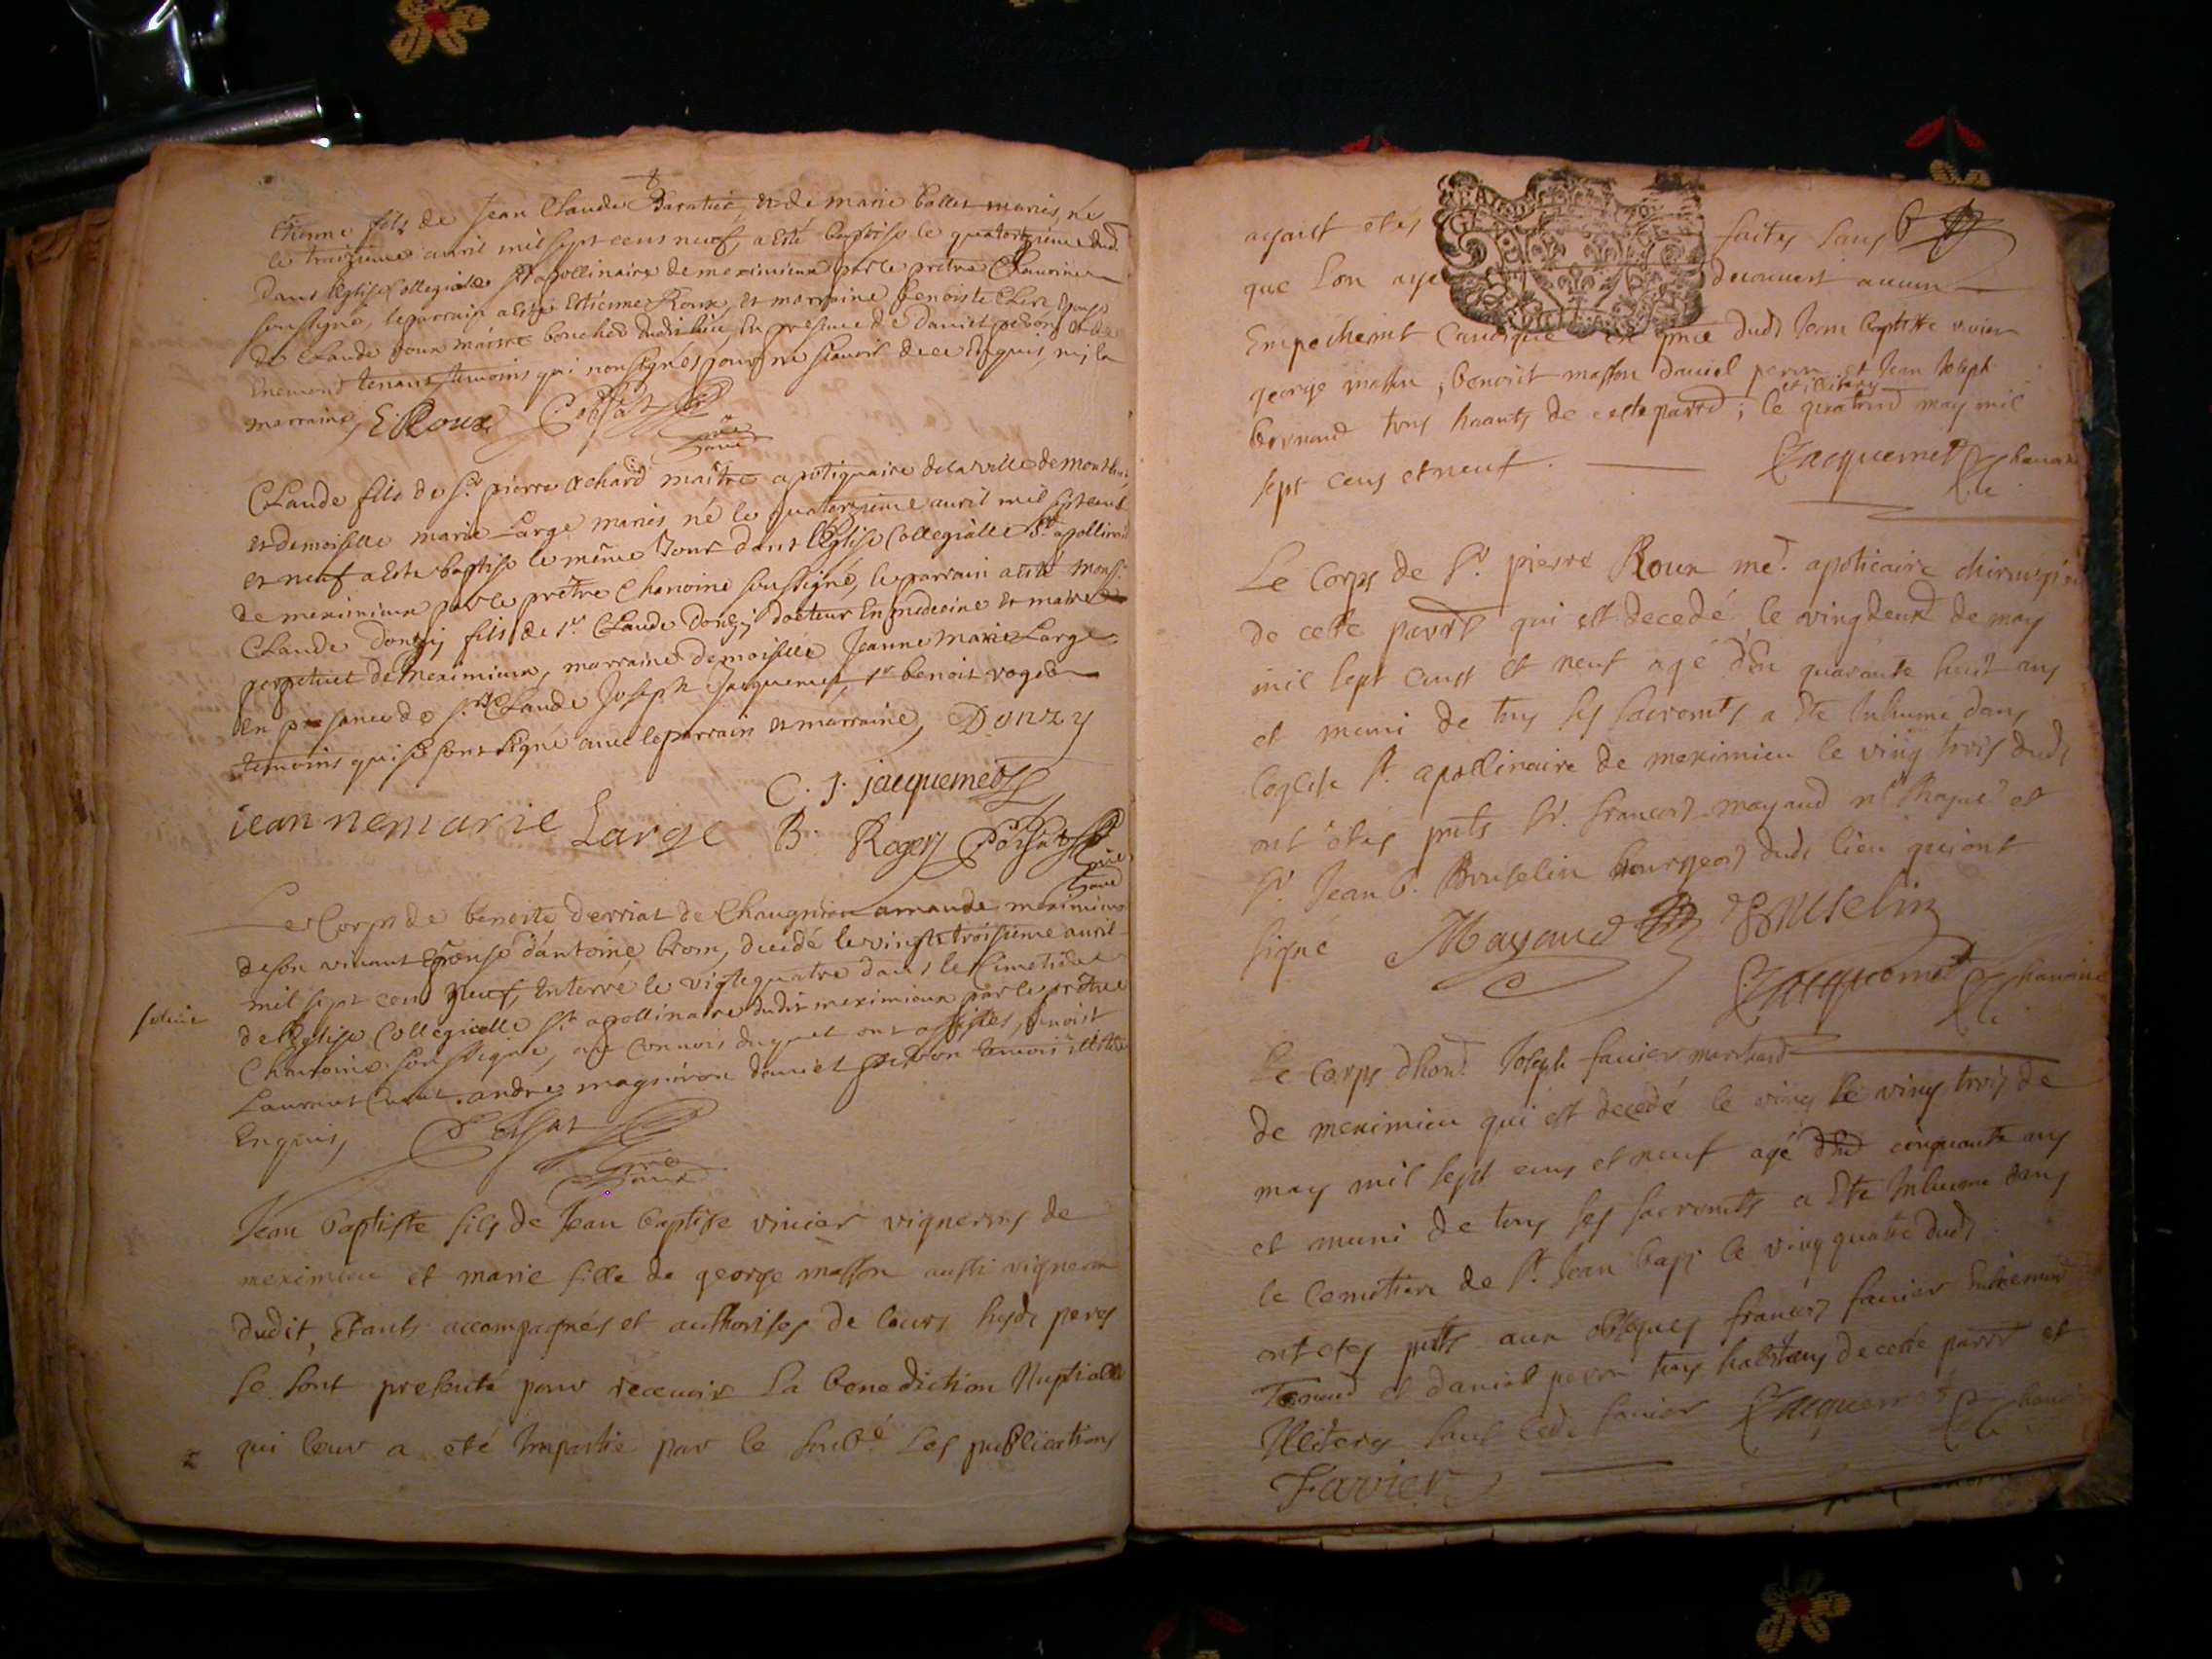 Etienne fils de Jean Claude Baratier, et de marie ballet mariés, né
le treizieme avril mil sept cens neuf, a esté baptise le quatorzieme dud.
dans leglise Collegialle St apollinaire de meximieux par le prêtre Chanoine
soussigné, le parrain a esté Estienne Roux, et marraine benoiste
de Claude roux maistre boucher dudit lieu, En presence de Daniel perron et de
Enemond tenant temoins qui non signés pour ne scavoir de ce Enquis, ny la
marraine, E Roux
Claude fils de Sr. pierre Achard maître apotiquaire de la ville de
et demoiselle marie Large mariés né le quatorzieme avril mil sept cent
et neuf a esté baptise le même Jour dans l'Eglise Collegialle St apollinaire
de meximieux par le prêtre Chanoine soussigné, le parrain a esté Monsr.
Claude Donzy fils de Sr. Claude Donzy docteur En medecine et maire
perpetuel de Meximieux, marraine demoiselle Jeanne Marie Large
En presence de Sr. Claude Joseph Jacquemet, Sr benoit roger
temoins qui se sont signé avec le parrain et marraine, Donzy
C. J. jacquemet
ieannemarie Large B. Roger
Le Corps de benoite derriat de
de son vivant Epouse d'antoine brom, decedé le vingt troisieme avril
mil sept cens neuf, Enterre le vigtequatre dans le Cimetiere
de l'Eglise Collegialle St apollinaire dudit meximieux par le prêtre
Chanoine soussigné, au Convois duquel ont assistés, benoist
Laurent andre magniron daniel perron temoins illiteré
Enquis,
Jean baptiste fils de Jean baptise vivier vignerons de
meximieu et marie fille de george masson aussi vigneron
dudit, Etants accompagnés et authorises de leurs susds peres
se sont presenté pour recevoir la benediction Nuptialle
qui leur a eté Impartie par le soubsé Les publications
ayant etés faites sans
que lon aye decouvert aucun
Empechemt Canonique en pnce dudt Jean baptiste vivier
george masson, benoist masson daniel peron et Jean Joseph
et illiteres
bernand tous haants de cette parred; le quatrie may mil
sept cens et neuf. Jacquemet Chanoine
Le Corps de Sr. pierre Roux me. apoticaire chirurgien
de cette parrse qui est decedé le vingdeux de may
mil sept cens et neuf agé d'En quarante heuit ans
et muni de tous ses sacremts a Ete Inhume dans
leglise St. apollinaire de meximieu le ving trois dudt
ont étes pnts Sr. francois mayaud nre Royal et
Sr. Jean b. Bouselin bourgeois dudt lieu qui ont
signe Mayaud Bouselin
Jacquemet Chanoine
Le Corps dhon. Joseph favier marchand
de meximieu qui est decedé le ving le ving trois de
may mil sept cens et neuf agé cinquante ans
et muni de tous ses sacremts a Ete Inhume dans
le Cemetiere de St. Jean bapt le ving quatre dudt
ont etes pnts aux obseques francois favier
et daniel peron tous habitans de cette parrse et
Illiteres sauf led. favier Jacquemet
Favier